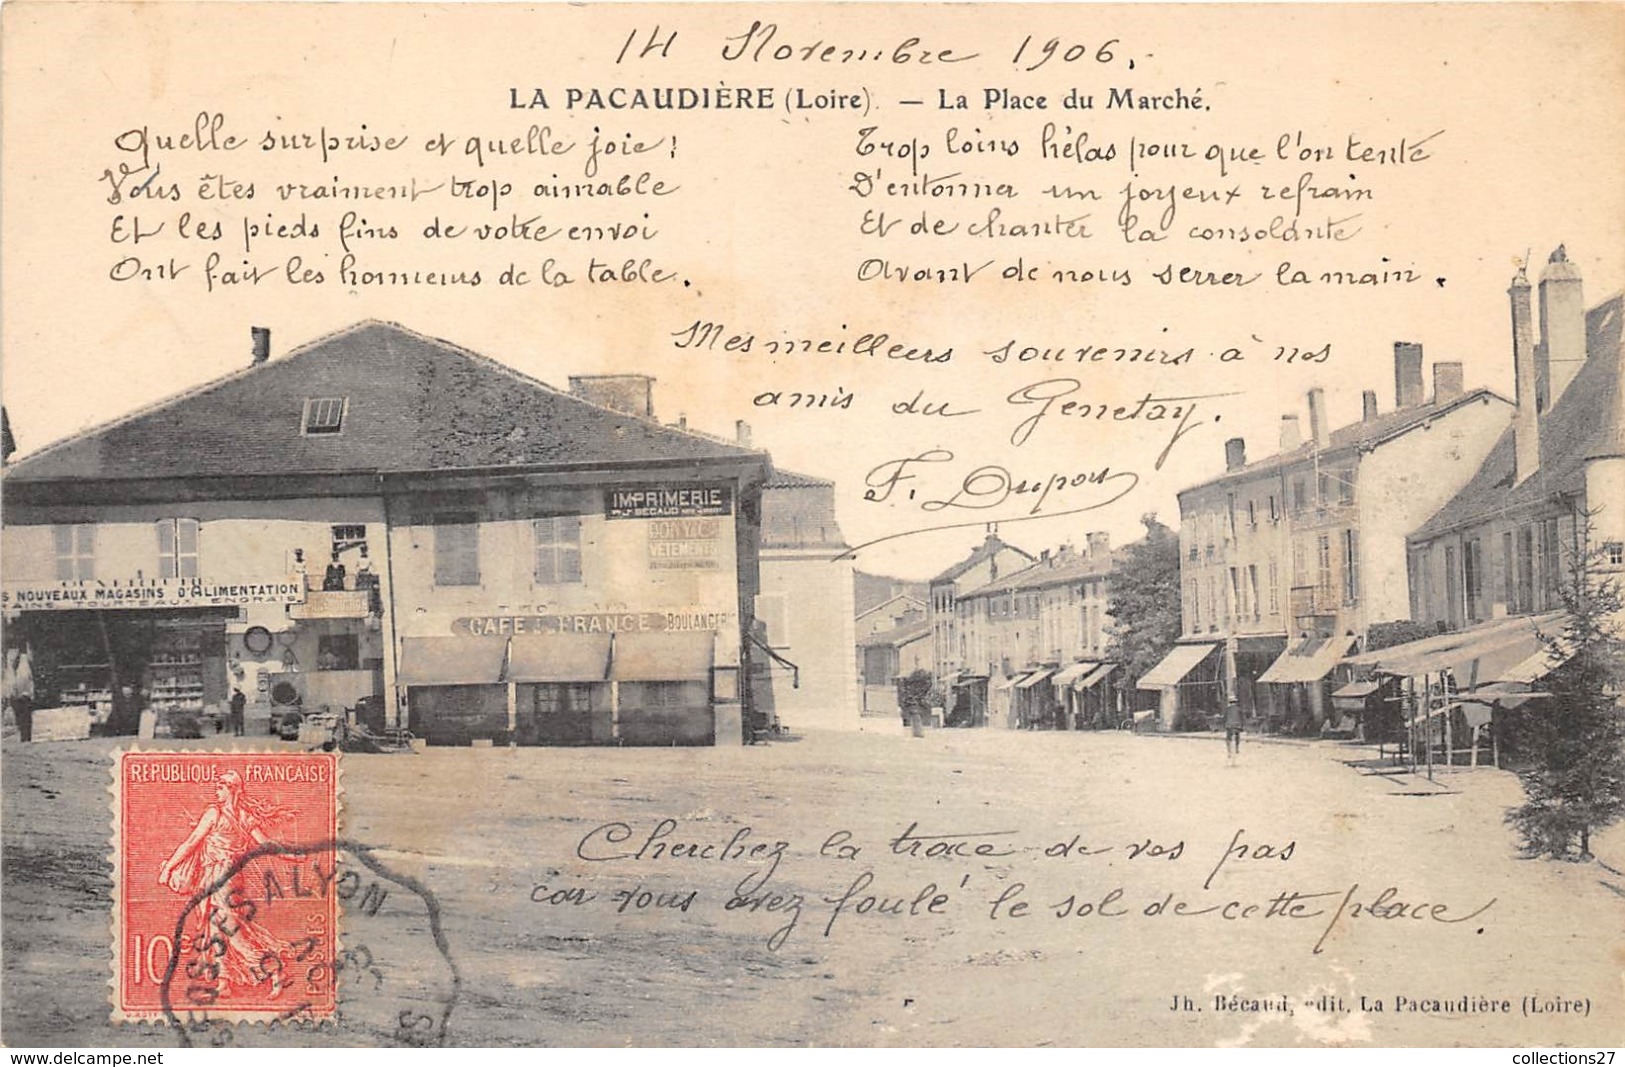 14 Novembre 1906.
LA PACAUDIÈRE (Loire). — La Place du Marché.
Quelle surprise et quelle joie!
Vous êtes vraiment trop aimable
Et les pieds fins de votre envoi
Ont fait les honneurs de la table.
Trop loin hélas pour que l'on tente
D'entonner un joyeux refrain
Et de chanter la consolante
Avant de nous serrer la main.
Mes meilleurs souvenirs à nos
amis du Genetay.
F. Dupon
IMPRIMERIE
BECAUD
VETEMENTS
S NOUVEAUX MAGASINS D'ALIMENTATION
RAINS TOURTEAUX ENGRAIS
CAFÉ DE FRANCE
BOULANGER
REPUBLIQUE FRANÇAISE
10c
POSTES
A LYON
Cherchez la trace de vos pas
car vous avez foulé le sol de cette place.
Jh. Bécaud, edit. La Pacaudière (Loire)
collections27